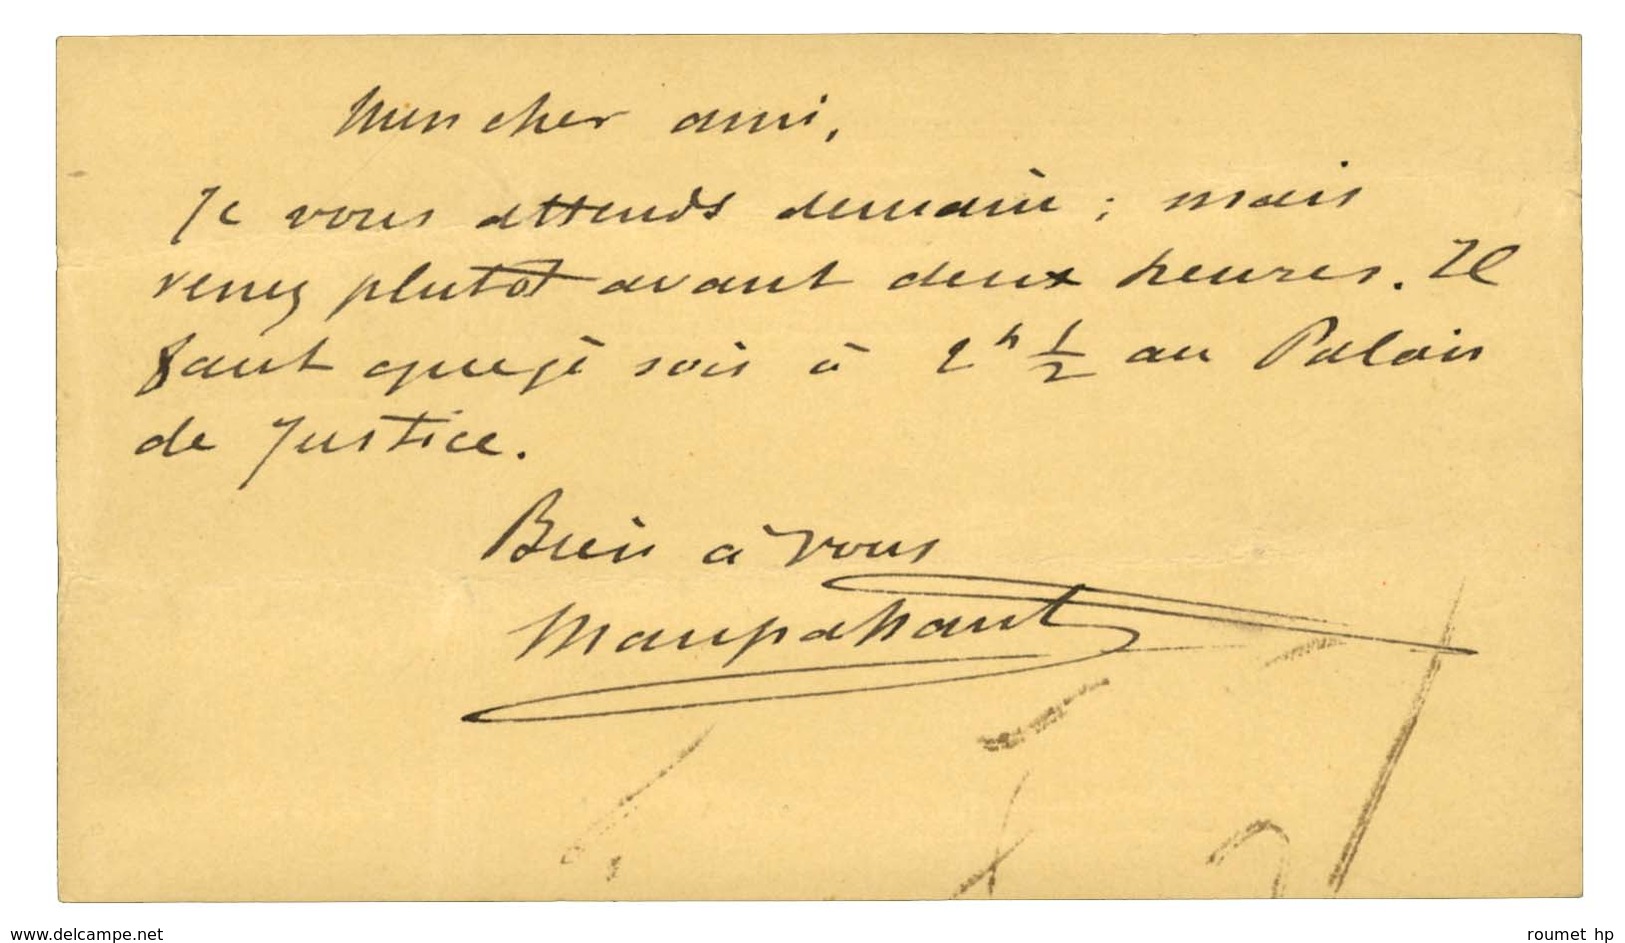 Mon cher ami,
Je vous attends demain ; mais
venez plutôt avant deux heures. Il
faut que je sois à 2 h 1/2 au Palais
de Justice.
Bien à vous
Maupassant
www.delcampe.net
roumet hp